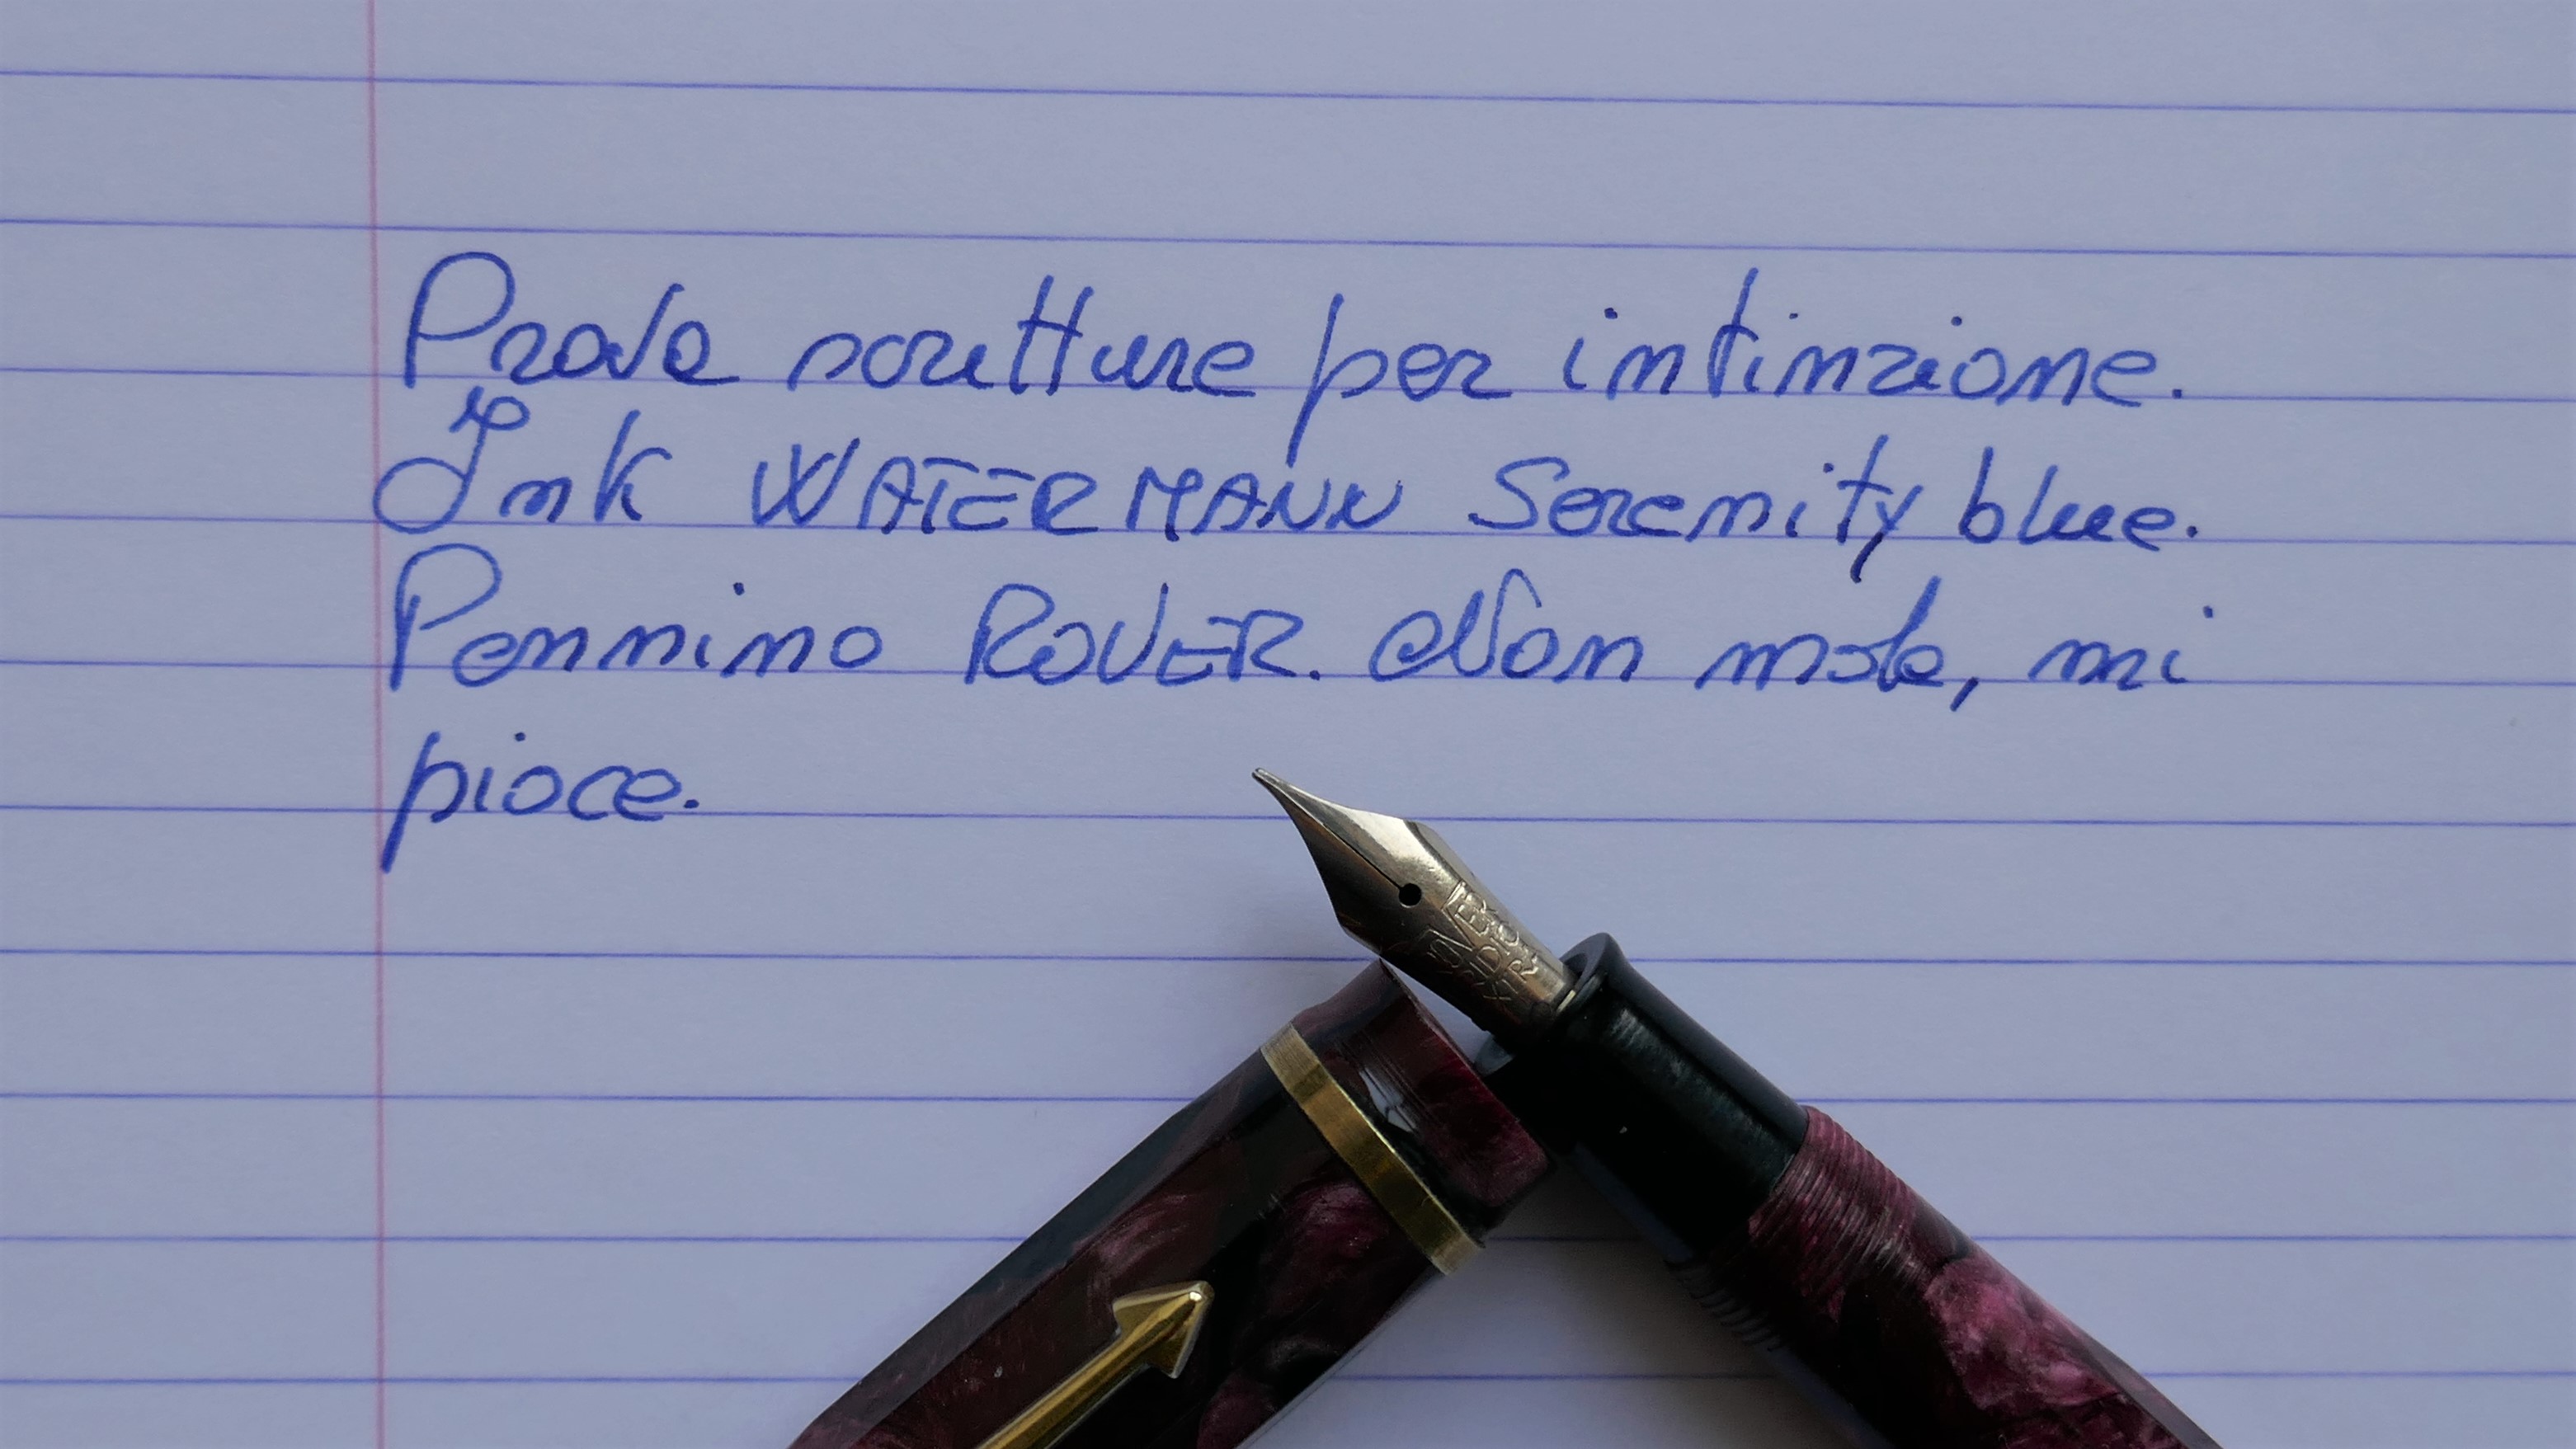 Prova scrittura per intinzione.
Ink WATERMANN Serenity blue.
Pennino ROVER. Non male, mi
piace.